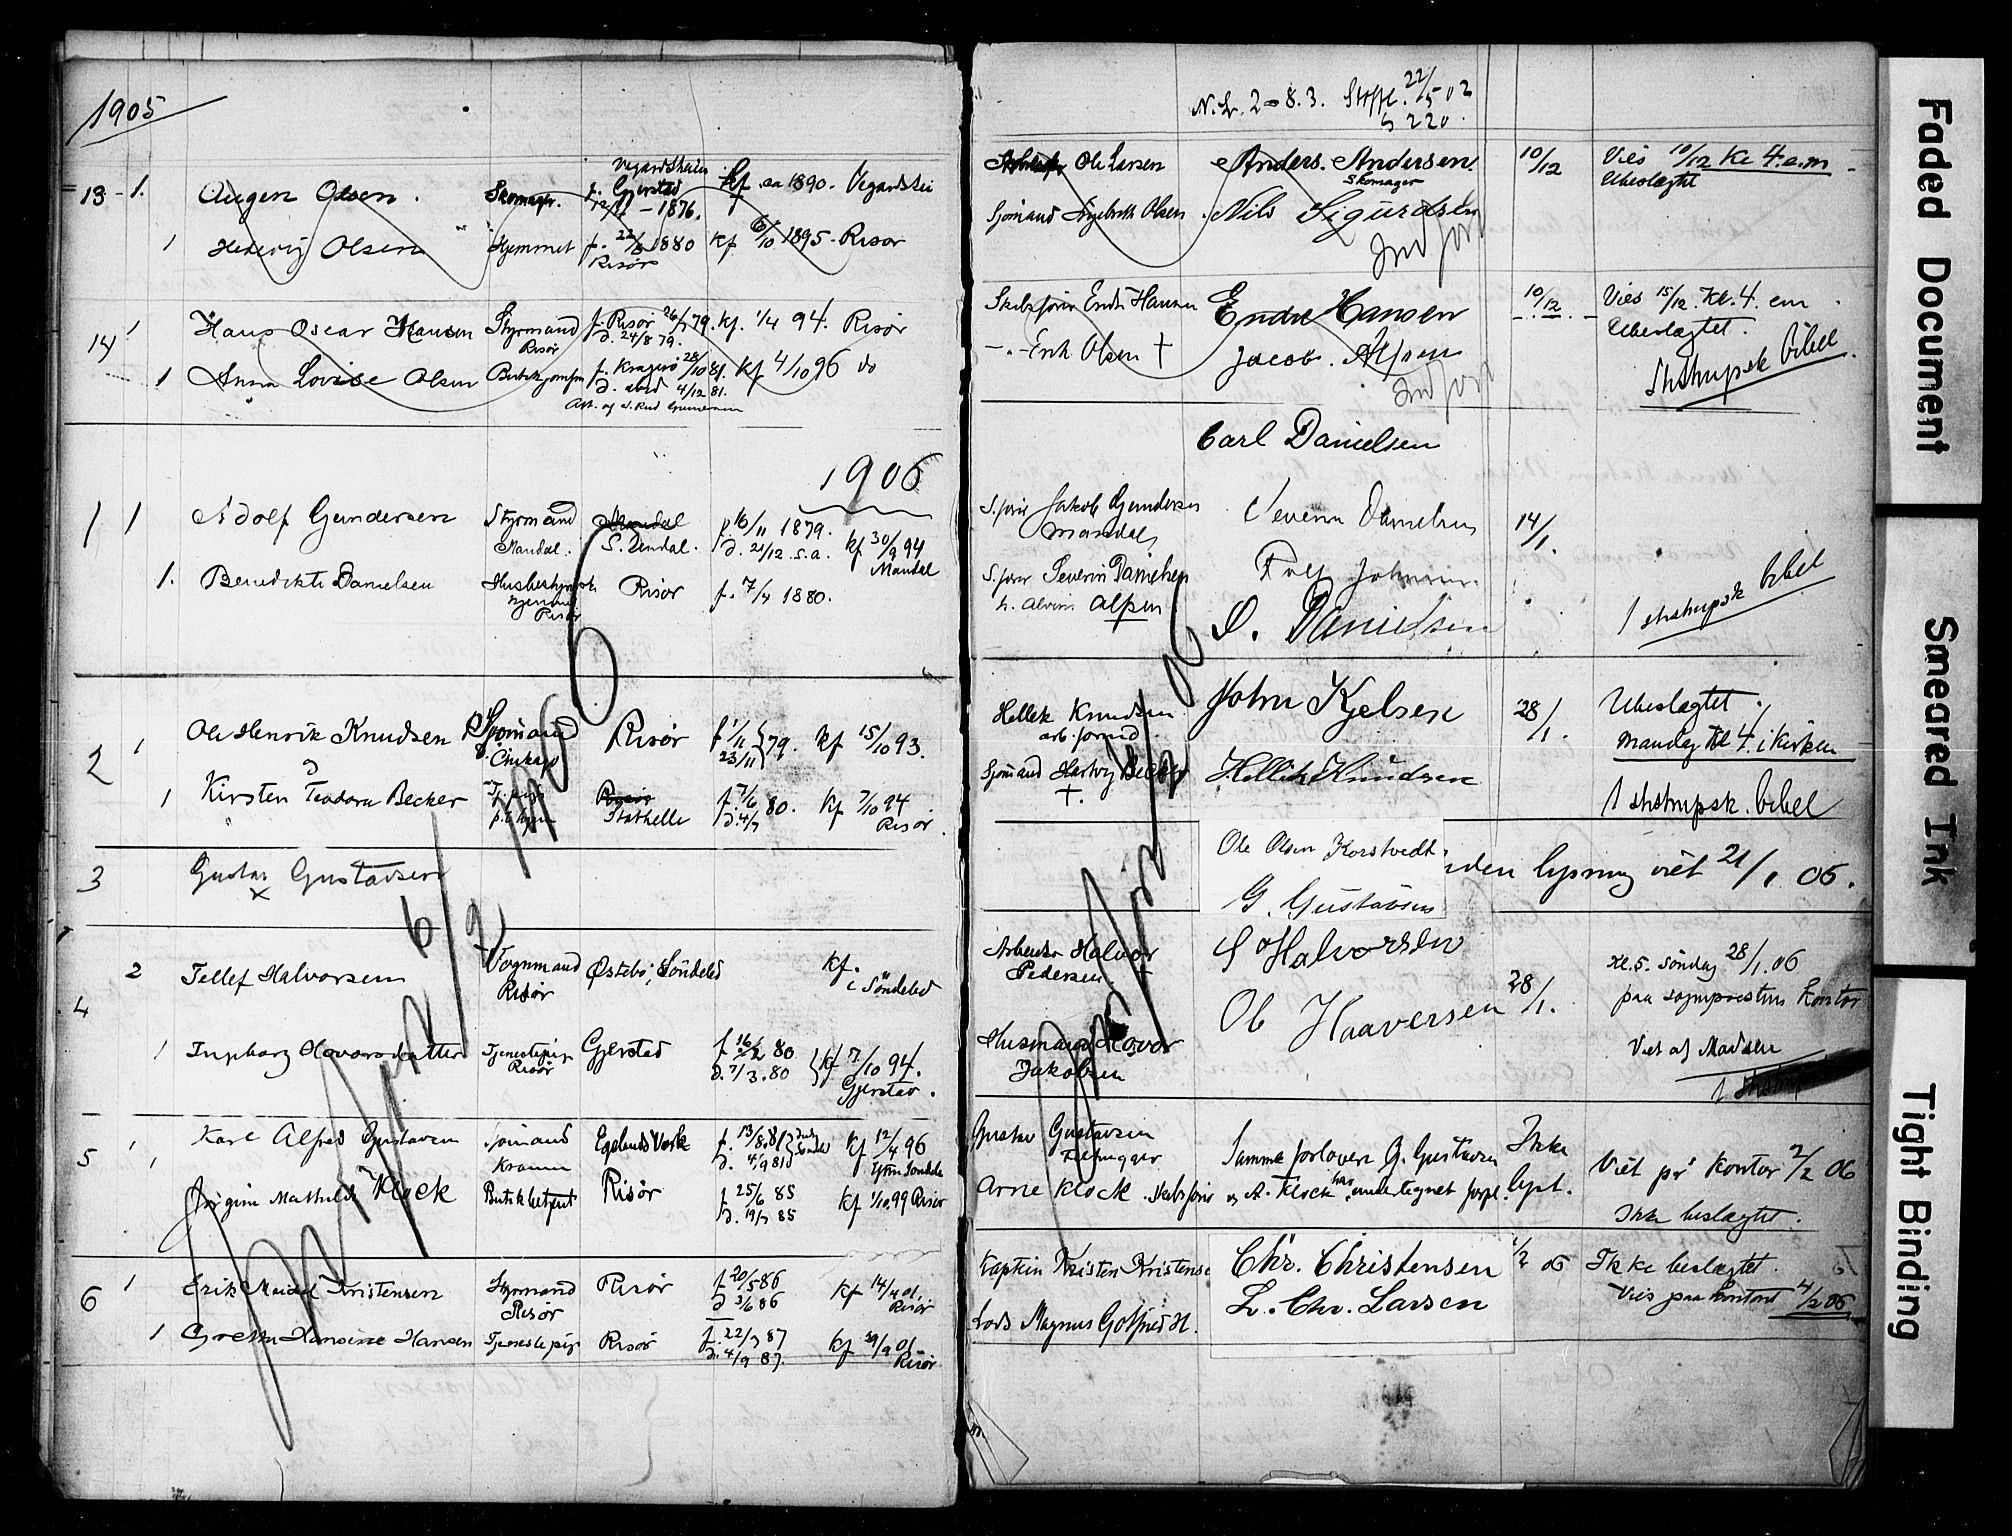 1905
13 - 1. Augen Olsen. Skomager. Vegardsheien f. Gjerstad 12/ - 1876. Kf. ca 1890. Vegardshei
1 Hedevig Olsen Hjemmet f. 22/6 1880 Risør Kf 6/10 1895. Risør
14 1 Hans Oscar Hansen Styrmand Risør f. Risør 26/7 79. d. 24/8 79. kf. 1/4 94. Risør
1 Anna Lovise Olsen f. Kragerø 28/10 81. d. 4/12 81. Kf 4/10 96 do
1906
1 1 Adolf Gundersen Styrmand Mandal. Mandal S. Undal. f. 16/11 1879. d. 21/12 s.a. Kf 30/9 94 Mandal
1. Benedikte Danielsen Hjemme Risør Risør f. 7/4 1880.
2 1 Ole Henrik Knudsen Sjømand Chikago Risør f 1/11 23/11 79. Kf 15/10 93.
1 Kirsten Teodora Becker Risør Stathelle f. 7/6 d. 4/7 80. Kf 7/10 94 Risør.
3 Gustav Gustavsen
x
4 2 Tellef Halvorsen Vognmand Risør Østebø, Søndeled Kf. i Søndeled
1 Ingborg Hovorsdatter Tjenestepig Risør Gjerstad f 16/2 80 d. 7/3. 80 Kf 7/10 94. Gjerstad.
5 1 Karl Alfred Gustavsen Sjømand Egelands Værk f. 13/8. 81 d. 4/9 81 Kf 12/4 96
1 Jørgine Mathilde Klock Butikbetjent Risør f 25/6 85 d. 19/7 85 Kf 1/10. 99 Risør
6 1 Erik Meidel Kristensen Styrmand Risør Risør f 20/5 86 d 3/6 86 Kf 14/4 01. Risør
1 Grethe Hansine Hansen Tjenestepig Risør f. 22/7 87 d. 4/9 87. Kf 29/9 01 Risør
Indført 6/2 1906
N. L. 2 = 8. 3. Stoffl. 22/5 02
S 220.
Ole Larsen Anders. Andersen. Skomager 10/12 Vies 10/12 Kl 4. e.m Ubeslægtet
Sjømand Ingebreth Olsen. Nils Sigurdsen
Indført
Skibsfører Endre Hansen Endre Hansen 10/12 Vies 15/12. Kl. 4. em. Ubeslægtet.
- . - Erik Olsen † Jacob. Alfsen
Indført
1 ststrupsk bibel
Carl Danielsen
S. fører Jakob Gundersen Mandal Severin Danielsen 14/1.
S. fører Severin Danielsen
Alfsen S. Danielsen
1 ststrupsk bibel
Hellek Knudsen arb. formd. John Kjelsen 28/1. Ubeslægtet.
Mandag Kl 4. i Kirken
Sjømand Hartvig Becker †. Hellik Knudsen
1 ststrupsk. bibel
Ole Olsen Korstvedt.
G. Gustavsen
uden lysning viet 21/1 06.
Arbeider Halvor Pedersen. † S Halvorsen
Kl. 5. Søndag 28/1. 06
paa sognprestens Kontor
Husmand Hovor Jakobsen Ole Haaversen 28/1.
Viet af Madsen
Gustav Gustavsen
Arne Klock. Skibsfører
Samme forlovere G. Gustavsen og A. Klock har undertegnet forpl.
Ikke lyst.
Viet på Kontor 2/2 06
Ikke beslægtet.
Kaptein Kristen Kristensen Chr. Christensen 1/2 06 Ikke beslægtet.
Lods Magnus Gotfred H. L. Chr. Larsen
Vies paa Kontoret 4/2 06
Faded Document
Smeared Ink
Tight Binding